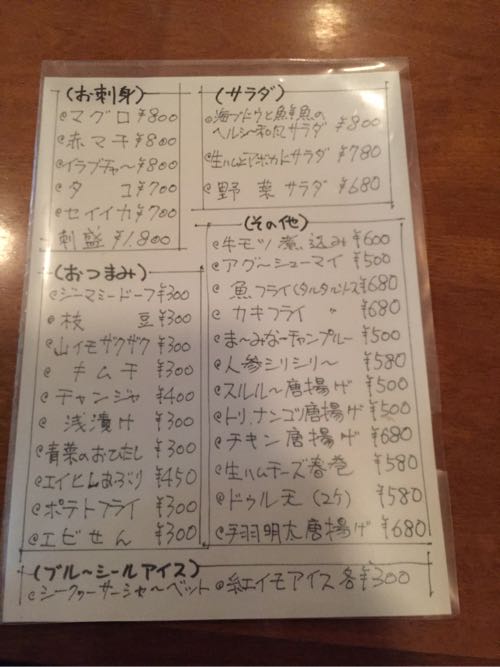 (お刺身)
@マグロ ¥800
@赤マチ ¥800
@イラブチャ〜 ¥800
@タコ ¥700
@セイイカ ¥700
刺盛 ¥1.800
(サラダ)
@海ブドウと鮮魚の
ヘルシー和風サラダ ¥800
@生ハムとアボカドサラダ ¥780
@野菜サラダ ¥680
(おつまみ)
@ジーマミードーフ ¥300
@枝豆 ¥300
@山イモザクザク ¥300
@キムチ ¥300
@チャンジャ ¥400
@浅漬け ¥300
@青菜のおひたし ¥300
@エイヒレあぶり ¥450
@ポテトフライ ¥300
@エビせん ¥300
(その他)
@牛モツ煮込み ¥600
@アグ〜シューマイ ¥500
@魚フライ(タルタルソース) ¥680
@カキフライ 〃 ¥680
@ま〜みな〜チャンプルー ¥500
@人参シリシリ〜 ¥580
@スルル〜唐揚げ ¥500
@トリ.ナンコツ唐揚げ ¥500
@チキン唐揚げ ¥680
@生ハムチーズ春巻 ¥580
@ドゥル天(2ケ) ¥580
@手羽明太唐揚げ ¥680
(ブル〜シールアイス)
@シークヮーサーシャ〜ベット @紅イモアイス 各¥300